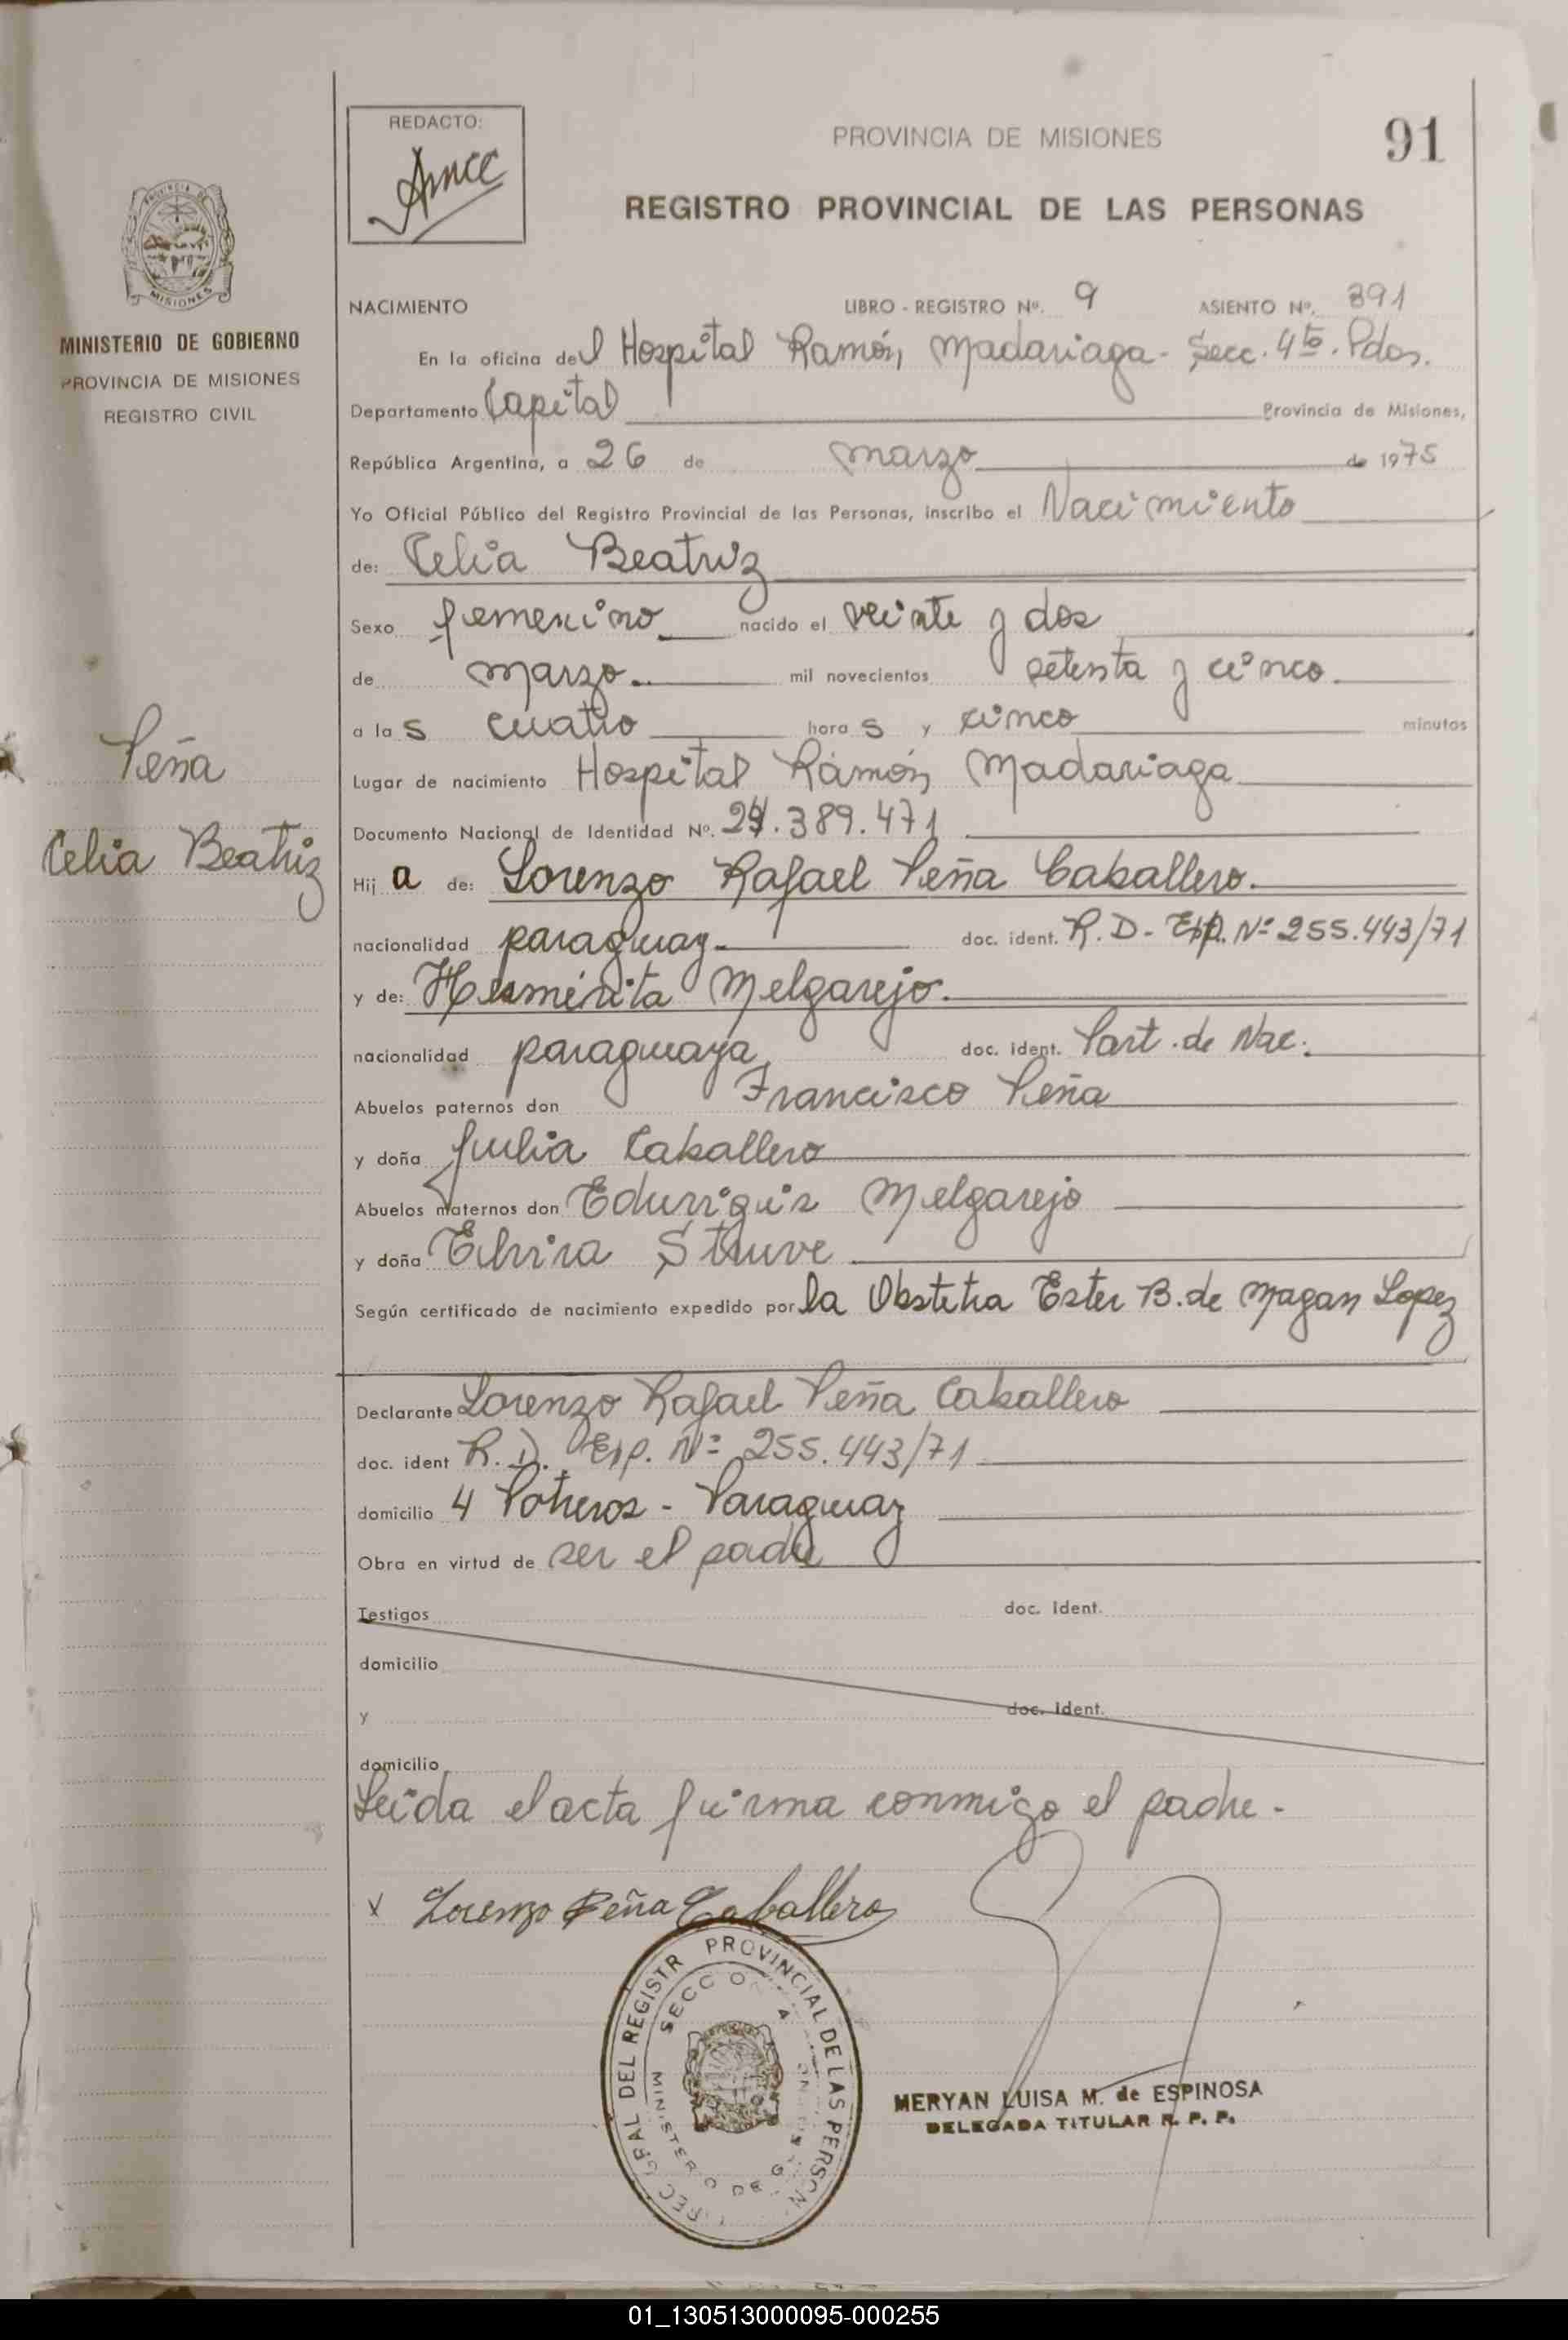 REDACTO:
PROVINCIA DE MISIONES
91
REGISTRO PROVINCIAL DE LAS PERSONAS
MISIONES
MINISTERIO DE GOBIERNO
PROVINCIA DE MISIONES
REGISTRO CIVIL
Peña
Celia Beatriz
NACIMIENTO LIBRO - REGISTRO Nº. 9 ASIENTO Nº. 891
En la oficina del Hospital Ramón Madariaga - Secc. 4to. Pdas.
Departamento Capital Provincia de Misiones,
República Argentina, a 26 de marzo de 1975
Yo Oficial Público del Registro Provincial de las Personas, inscribo el Nacimiento
de: Celia Beatriz
Sexo femenino nacido el veinte y dos
de marzo. mil novecientos setenta y cinco.
a las cuatro horas y cinco minutos
Lugar de nacimiento Hospital Ramón Madariaga
Documento Nacional de Identidad Nº. 24.389.471
Hija de: Lorenzo Rafael Peña Caballero.
nacionalidad paraguay doc. ident. R. D. - Exp. Nº 255.443/71
y de: Herminita Melgarejo.
nacionalidad paraguaya doc. ident. Part. de Nac.
Abuelos paternos don Francisco Peña
y doña Julia Caballero
Abuelos maternos don Eduviguis Melgarejo
y doña Elvira Struve
Según certificado de nacimiento expedido por la Obstetra Ester B. de Magan Lopez
Declarante Lorenzo Rafael Peña Caballero
doc. ident R. D. Exp. Nº 255.443/71
domicilio 4 Potreros - Paraguay
Obra en virtud de ser el padre
Testigos doc. ident.
domicilio
y doc. ident.
domicilio
Leida el acta firma conmigo el padre -
x Lorenzo Peña Caballero
PROVINCIAL DE LAS PERSON
GRAL DEL REGISTR
SECCION
MINISTERIO DE G
MERYAN LUISA M. de ESPINOSA
DELEGADA TITULAR R. P. P.
01_130513000095-000255